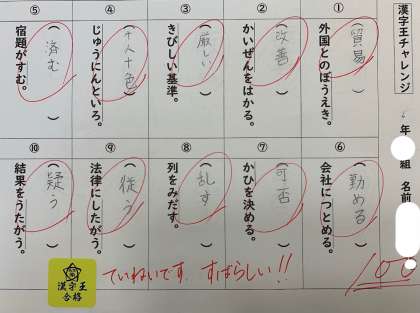 漢字王チャレンジ
6年 組 名前
①
(貿易)
外国とのぼうえき。
②
(改善)
かいぜんをはかる。
③
(厳しい)
きびしい基準。
④
(十人十色)
じゅうにんといろ。
⑤
(済む)
宿題がすむ。
⑥
(勤める)
会社につとめる。
⑦
(可否)
かひを決める。
⑧
(乱す)
列をみだす。
⑨
(従う)
法律にしたがう。
⑩
(疑う)
結果をうたがう。
漢字王
合格
ていねいです すばらしい!!
100